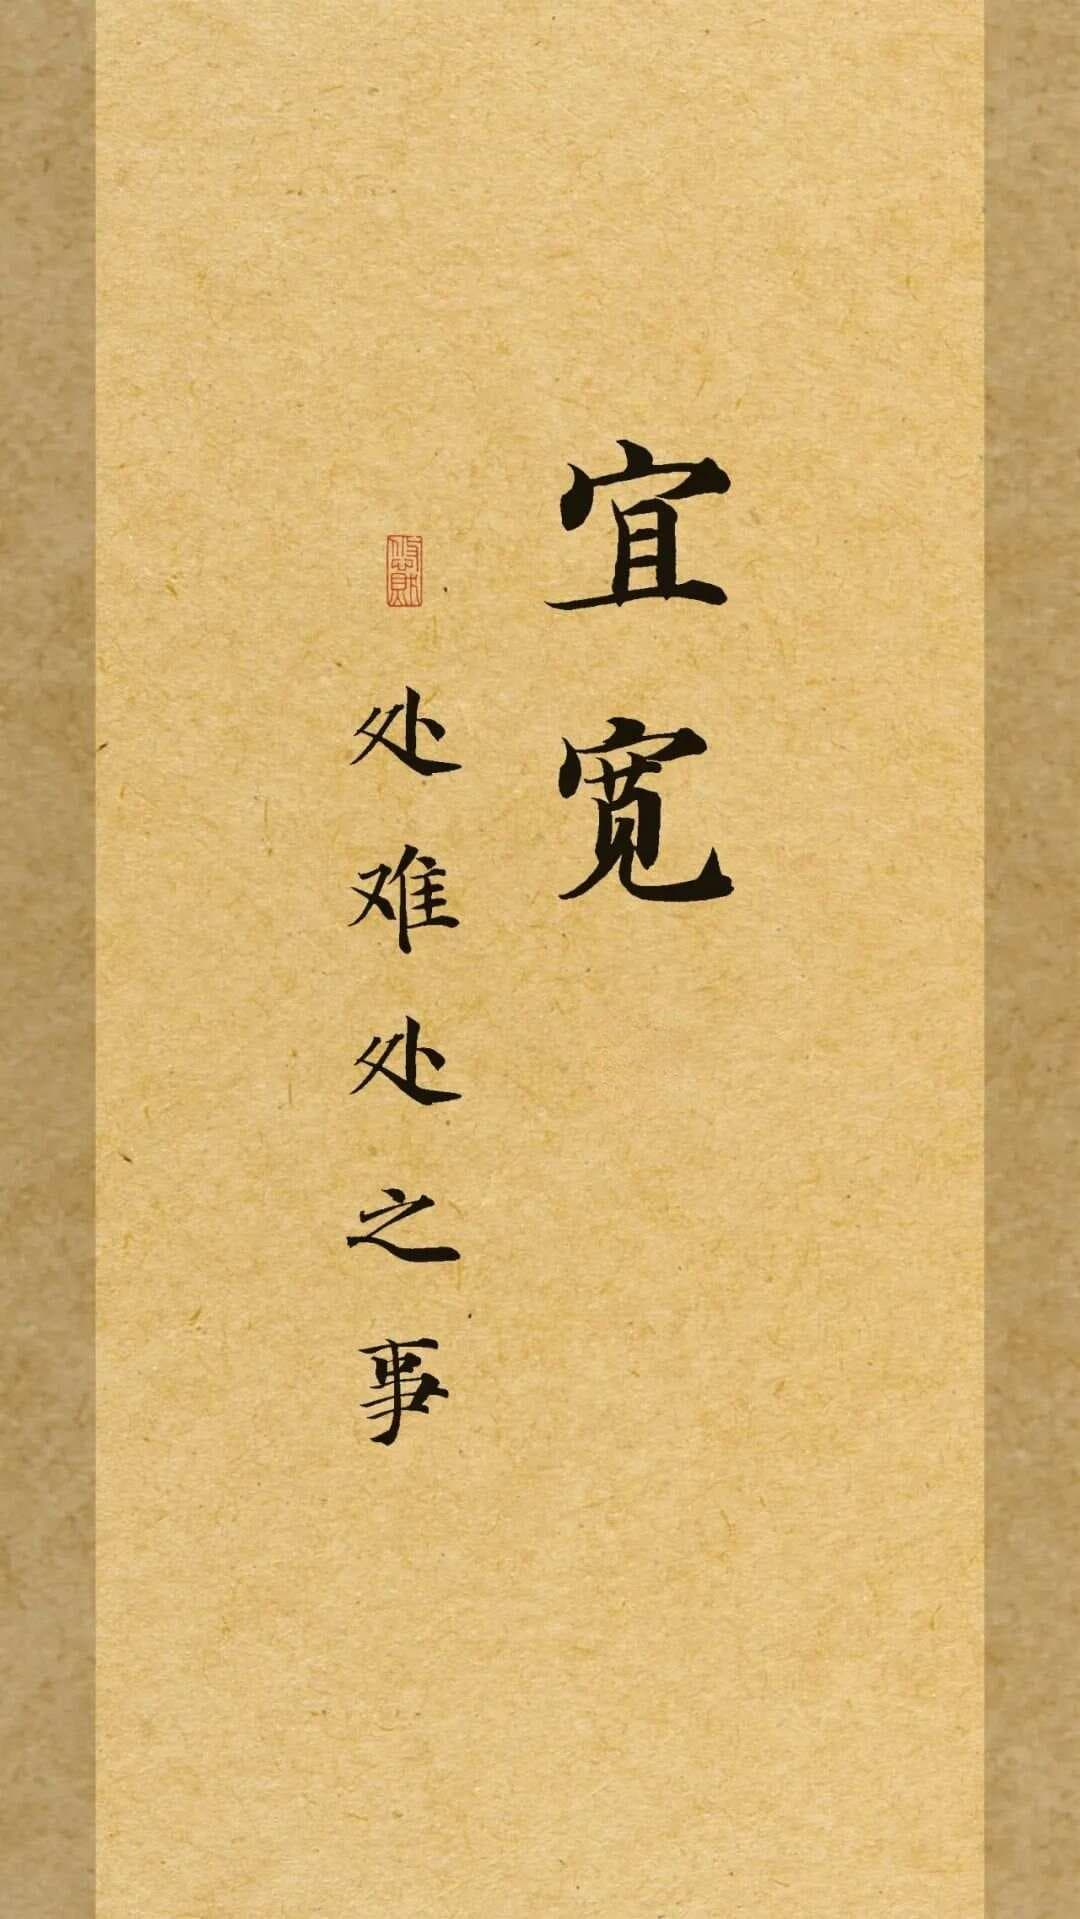 宜宽
处难处之事